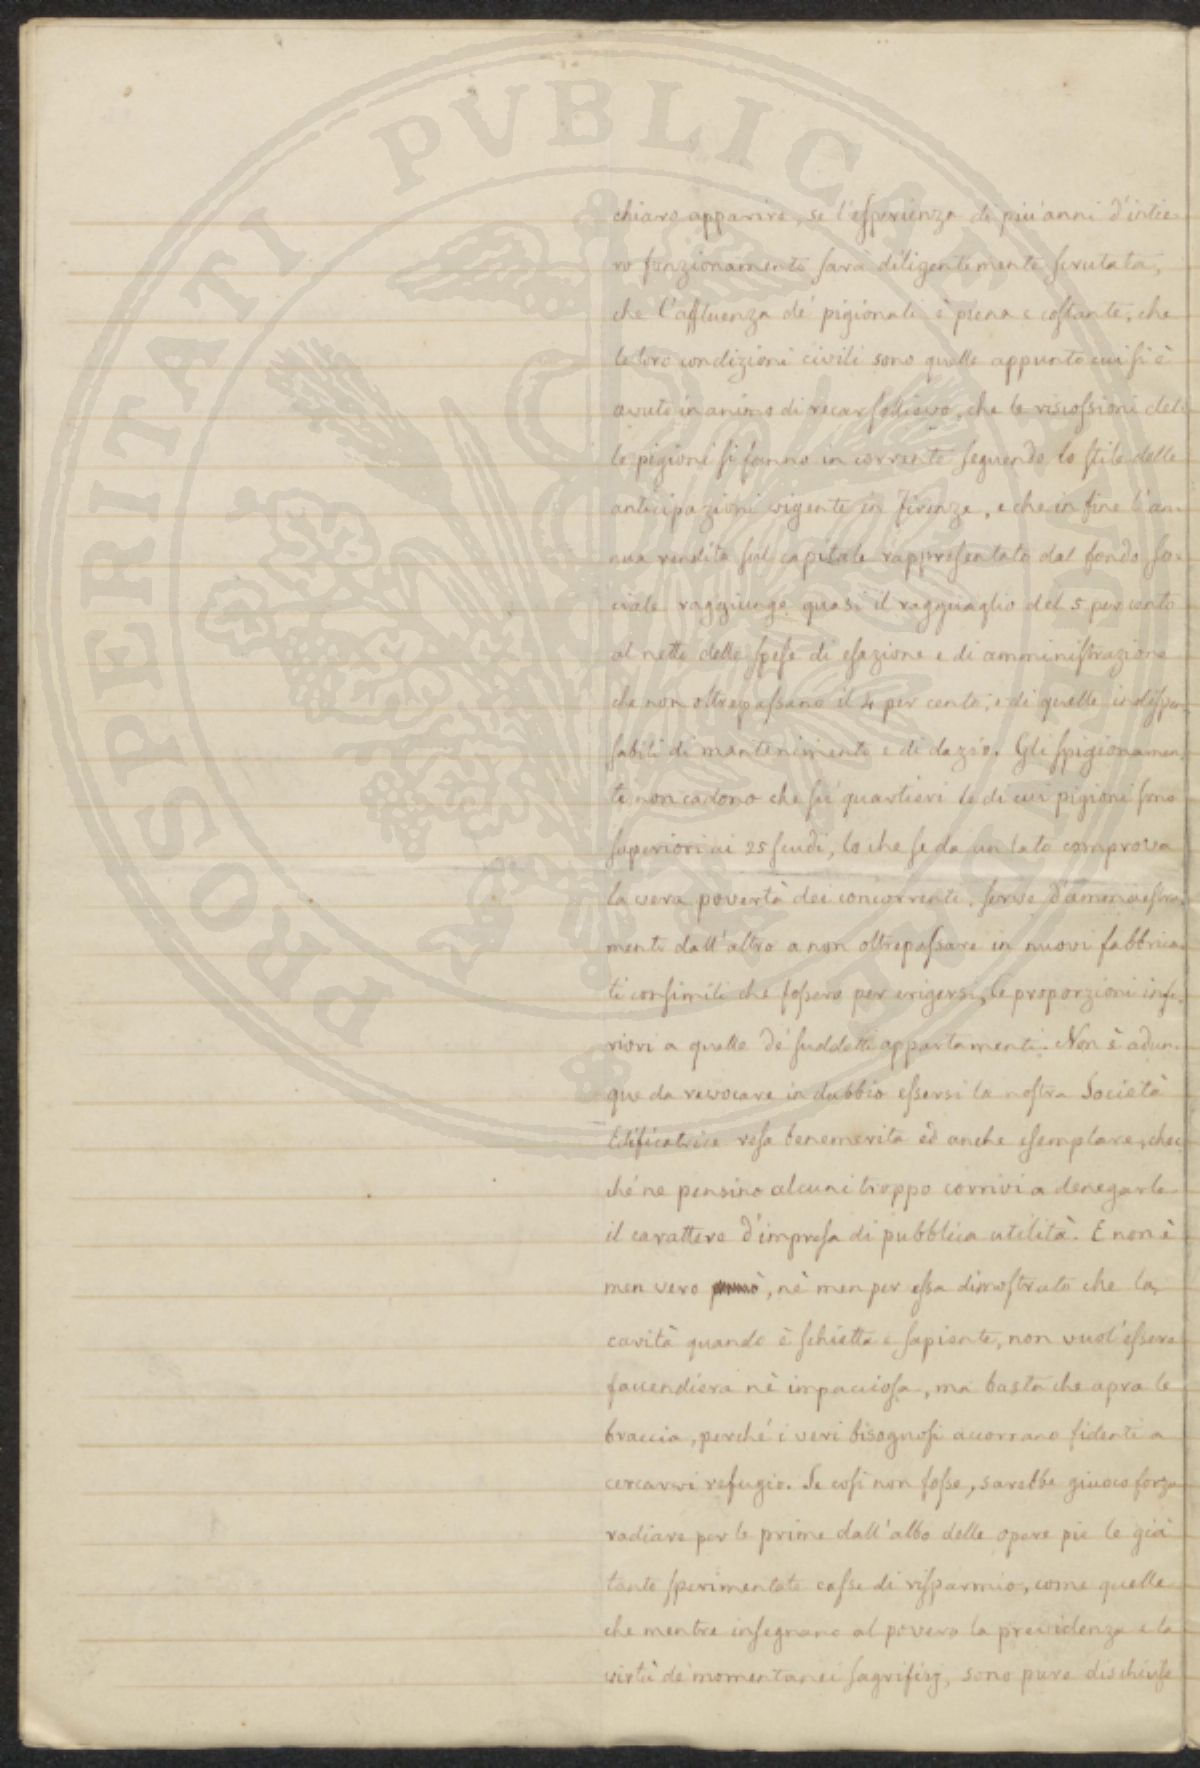 PROSPERITATI PVBLICAE AVGENDAE
chiaro apparire, se l'esperienza di più anni d'intie-
ro funzionamento sarà diligentemente scrutata,
che l'affluenza de' pigionali è piena e costante, che
le loro condizioni civili sono quelle appunto cui si è
avuto in animo di recar sollievo, che le riscossioni del-
le pigioni si fanno in corrente seguendo lo stile delle
anticipazioni vigente in Firenze, e che in fine l'an-
nua rendita sul capitale rappresentato dal fondo so-
ciale raggiunge quasi il ragguaglio del 5 per cento
al netto delle spese di esazione e di amministrazione
che non oltrepassano il 4 per cento, e di quelle indispen-
sabili di mantenimento e di dazio. Gli spigionamen-
ti non cadono che su' quartieri le di cui pigioni sono
superiori ai 25 scudi, lo che se da un lato comprova
la vera povertà dei concorrenti, serve d'ammaestra-
mento dall'altro a non oltrepassare in nuovi fabbrica-
ti consimili che fossero per erigersi, le proporzioni infe-
riori a quelle de' suddetti appartamenti. Non è adun-
que da revocare in dubbio essersi la nostra Società
Edificatrice resa benemerita ed anche esemplare, chec-
ché ne pensino alcuni troppo corrivi a denegarle
il carattere d'impresa di pubblica utilità. E non è
men vero , nè men per essa dimostrato che la
carità quando è schietta e sapiente, non vuol'essere
faccendiera nè impacciosa, ma basta che apra le
braccia, perché i veri bisognosi accorrano fidenti a
cercarvi refugio. Se così non fosse, sarebbe giuoco forza
radiare per le prime dall'albo delle opere pie le già
tanto sperimentate casse di risparmio, come quelle
che mentre insegnano al povero la previdenza e la
virtù de' momentanei sagrifizj, sono pure dischiuse